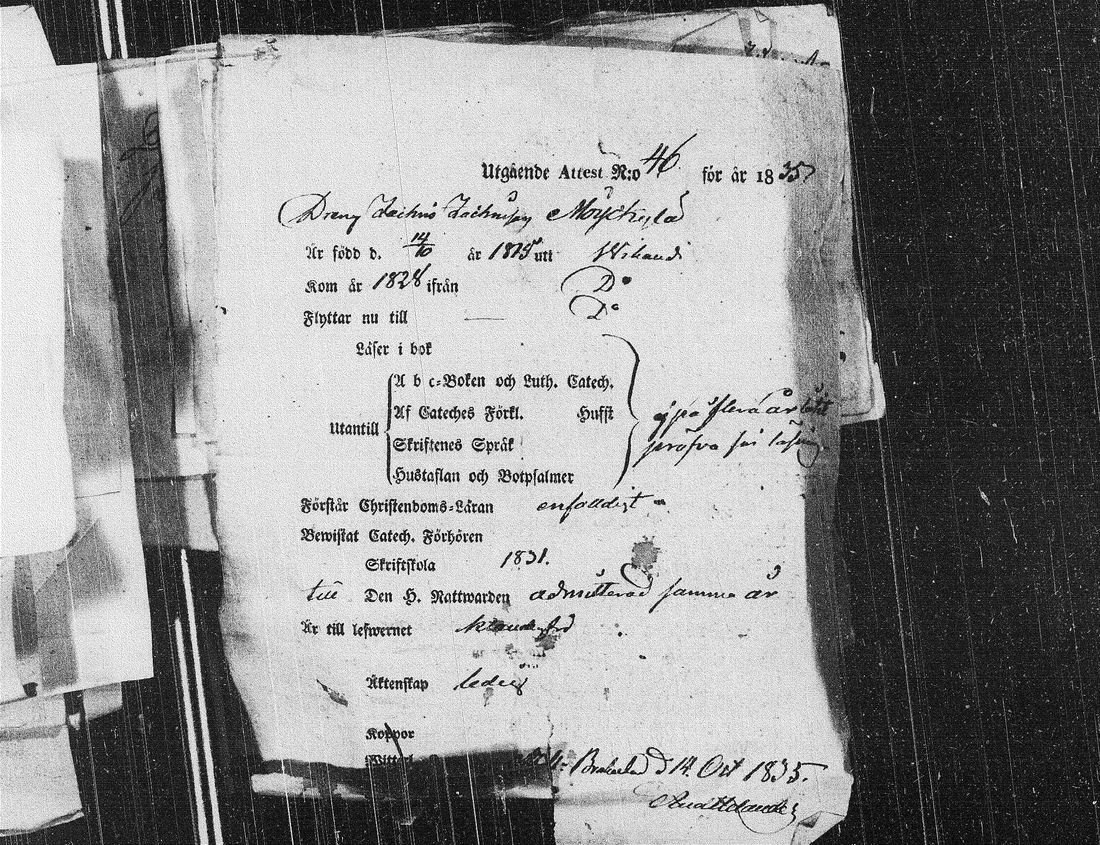 Utgående Attest N:o 46 för år 1835
Dreng Zachris
Är född d. 14/10 år 1815 uti
Kom år 1828 ifrån Do
Flyttar nu till — Do
Läser i bok
A b c-Boken och Luth. Catech.
Af Cateches Förkl. Hufst
Utantill
Skriftenes Språk
Hustaflan och Botpsalmer
ej på flera år låtit
pröfva sin läsning
Förstår Christendoms-Läran enfaldigt
Bewistat Catech. Förhören
Skriftskola 1831.
till Den H. Nattwarden admitterad samma år
Är till lefwernet
Äktenskap ledig
Koppor
d 14 Oct 1835.